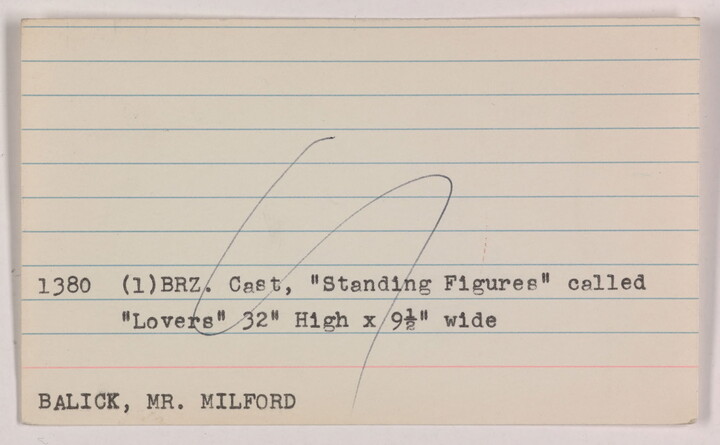 1380 (1)BRZ. Cast, "Standing Figures" called
"Lovers" 32" High x 9½" wide
BALICK, MR. MILFORD